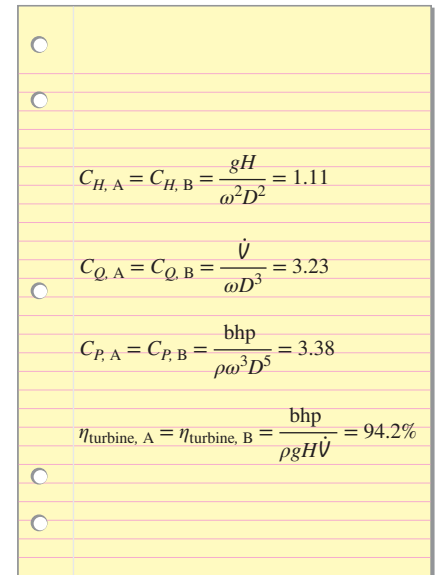 C_{H, A} = C_{H, B} = \frac{gH}{ω^2D^2} = 1.11
C_{Q, A} = C_{Q, B} = \frac{\dot{V}}{ωD^3} = 3.23
C_{P, A} = C_{P, B} = \frac{bhp}{ρω^3D^5} = 3.38
η_{turbine, A} = η_{turbine, B} = \frac{bhp}{ρgH\dot{V}} = 94.2%